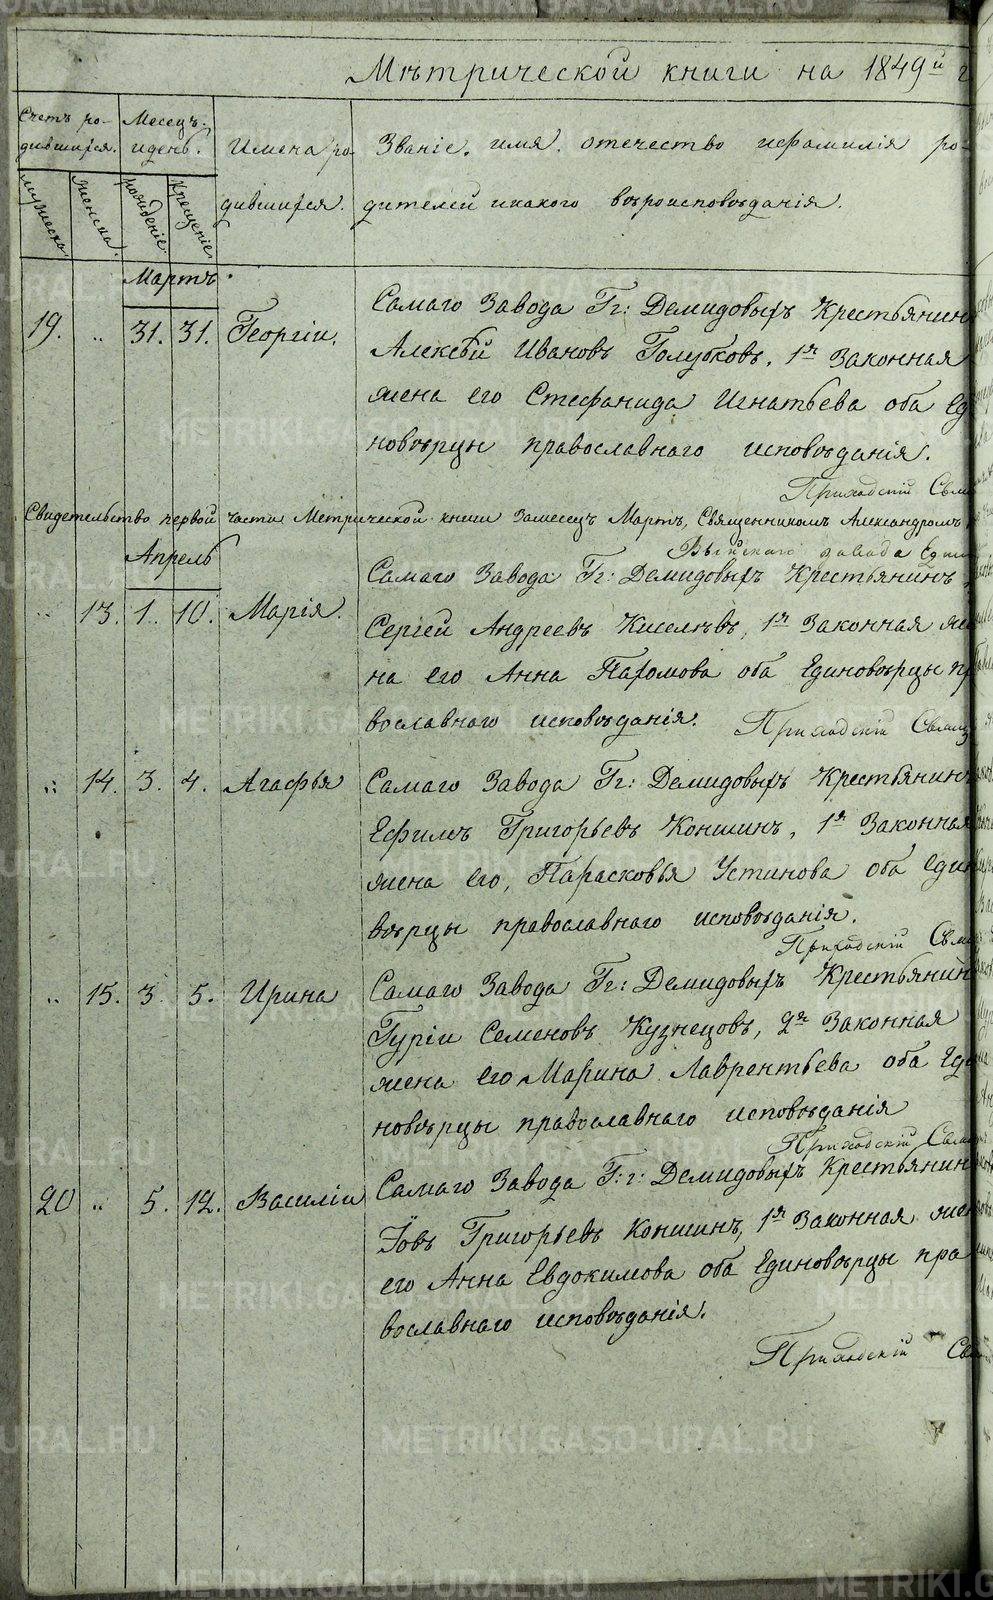 Мѣтрической книги на 1849й
Счетъ ро-
дившихся.
Месецъ.
и день.
Имена ро-
дившихся.
Званіе, имя, отечество и фамилія ро-
дителей и какого вѣроисповѣданія.
мужеска
женска.
рождение.
крещеніе
Мартъ.
19. „ 31. 31. Георгіи.
Самаго Завода Гг: Демидовыхъ Крестьянинъ
Алексѣй Ивановъ Голубковъ, 1я Законная
жена его Стефанида Игнатьева оба Ед
новѣрцы православнаго исповѣданія.
Приходскій
Свидетельство первой части Метрической книги Замесецъ Мартъ, Священникомъ Александромъ
Выйскаго завода
Апрель
„ 13. 1. 10. Марія.
Самаго Завода Гг: Демидовыхъ Крестьянинъ
Сергей Андреевъ Киселѣвъ, 1я Законная же
на его Анна Пахомова оба Единовѣрцы пр
вославнаго исповѣданія. Приходскій
„ 14. 3. 4. Агафья
Самаго Завода Гг: Демидовыхъ Крестьянинъ
Ефимъ Григорьевъ Коншинъ, 1я Законная
жена его, Парасковья Устинова оба Един
вѣрцы православнаго исповѣданія.
Приходскій
„ 15. 3. 5. Ирина
Самаго Завода Гг: Демидовыхъ Крестьянин
Гуріи Семеновъ Кузнецовъ, 2я Законная
жена его Марина Лаврентьева оба Еди
новѣрцы православнаго исповѣданія
Приходскій
20 „ 5. 12. Василіи
Самаго Завода Г: г: Демидовыхъ Крестьянин
Іовъ Григорьевъ Коншинъ, 1я Законная жен
его Анна Евдокимова оба Единовѣрцы пра
вославнаго исповѣданія.
Приходскій
METRIKI.GASO-URAL.RU